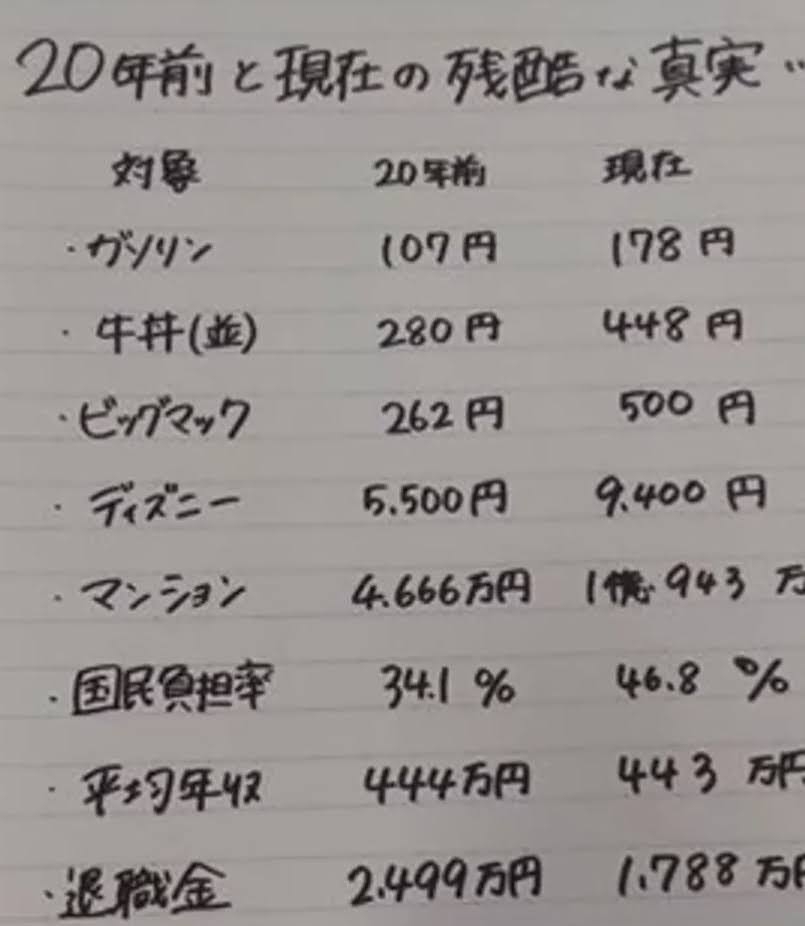 20年前と現在の残酷な真実‥
対象 20年前 現在
・ガソリン 107円 178円
・牛丼(並) 280円 448円
・ビッグマック 262円 500円
・ディズニー 5.500円 9.400円
・マンション 4.666万円 1億.943万
・国民負担率 34.1% 46.8%
・平均年収 444万円 443万円
・退職金 2.499万円 1.788万円